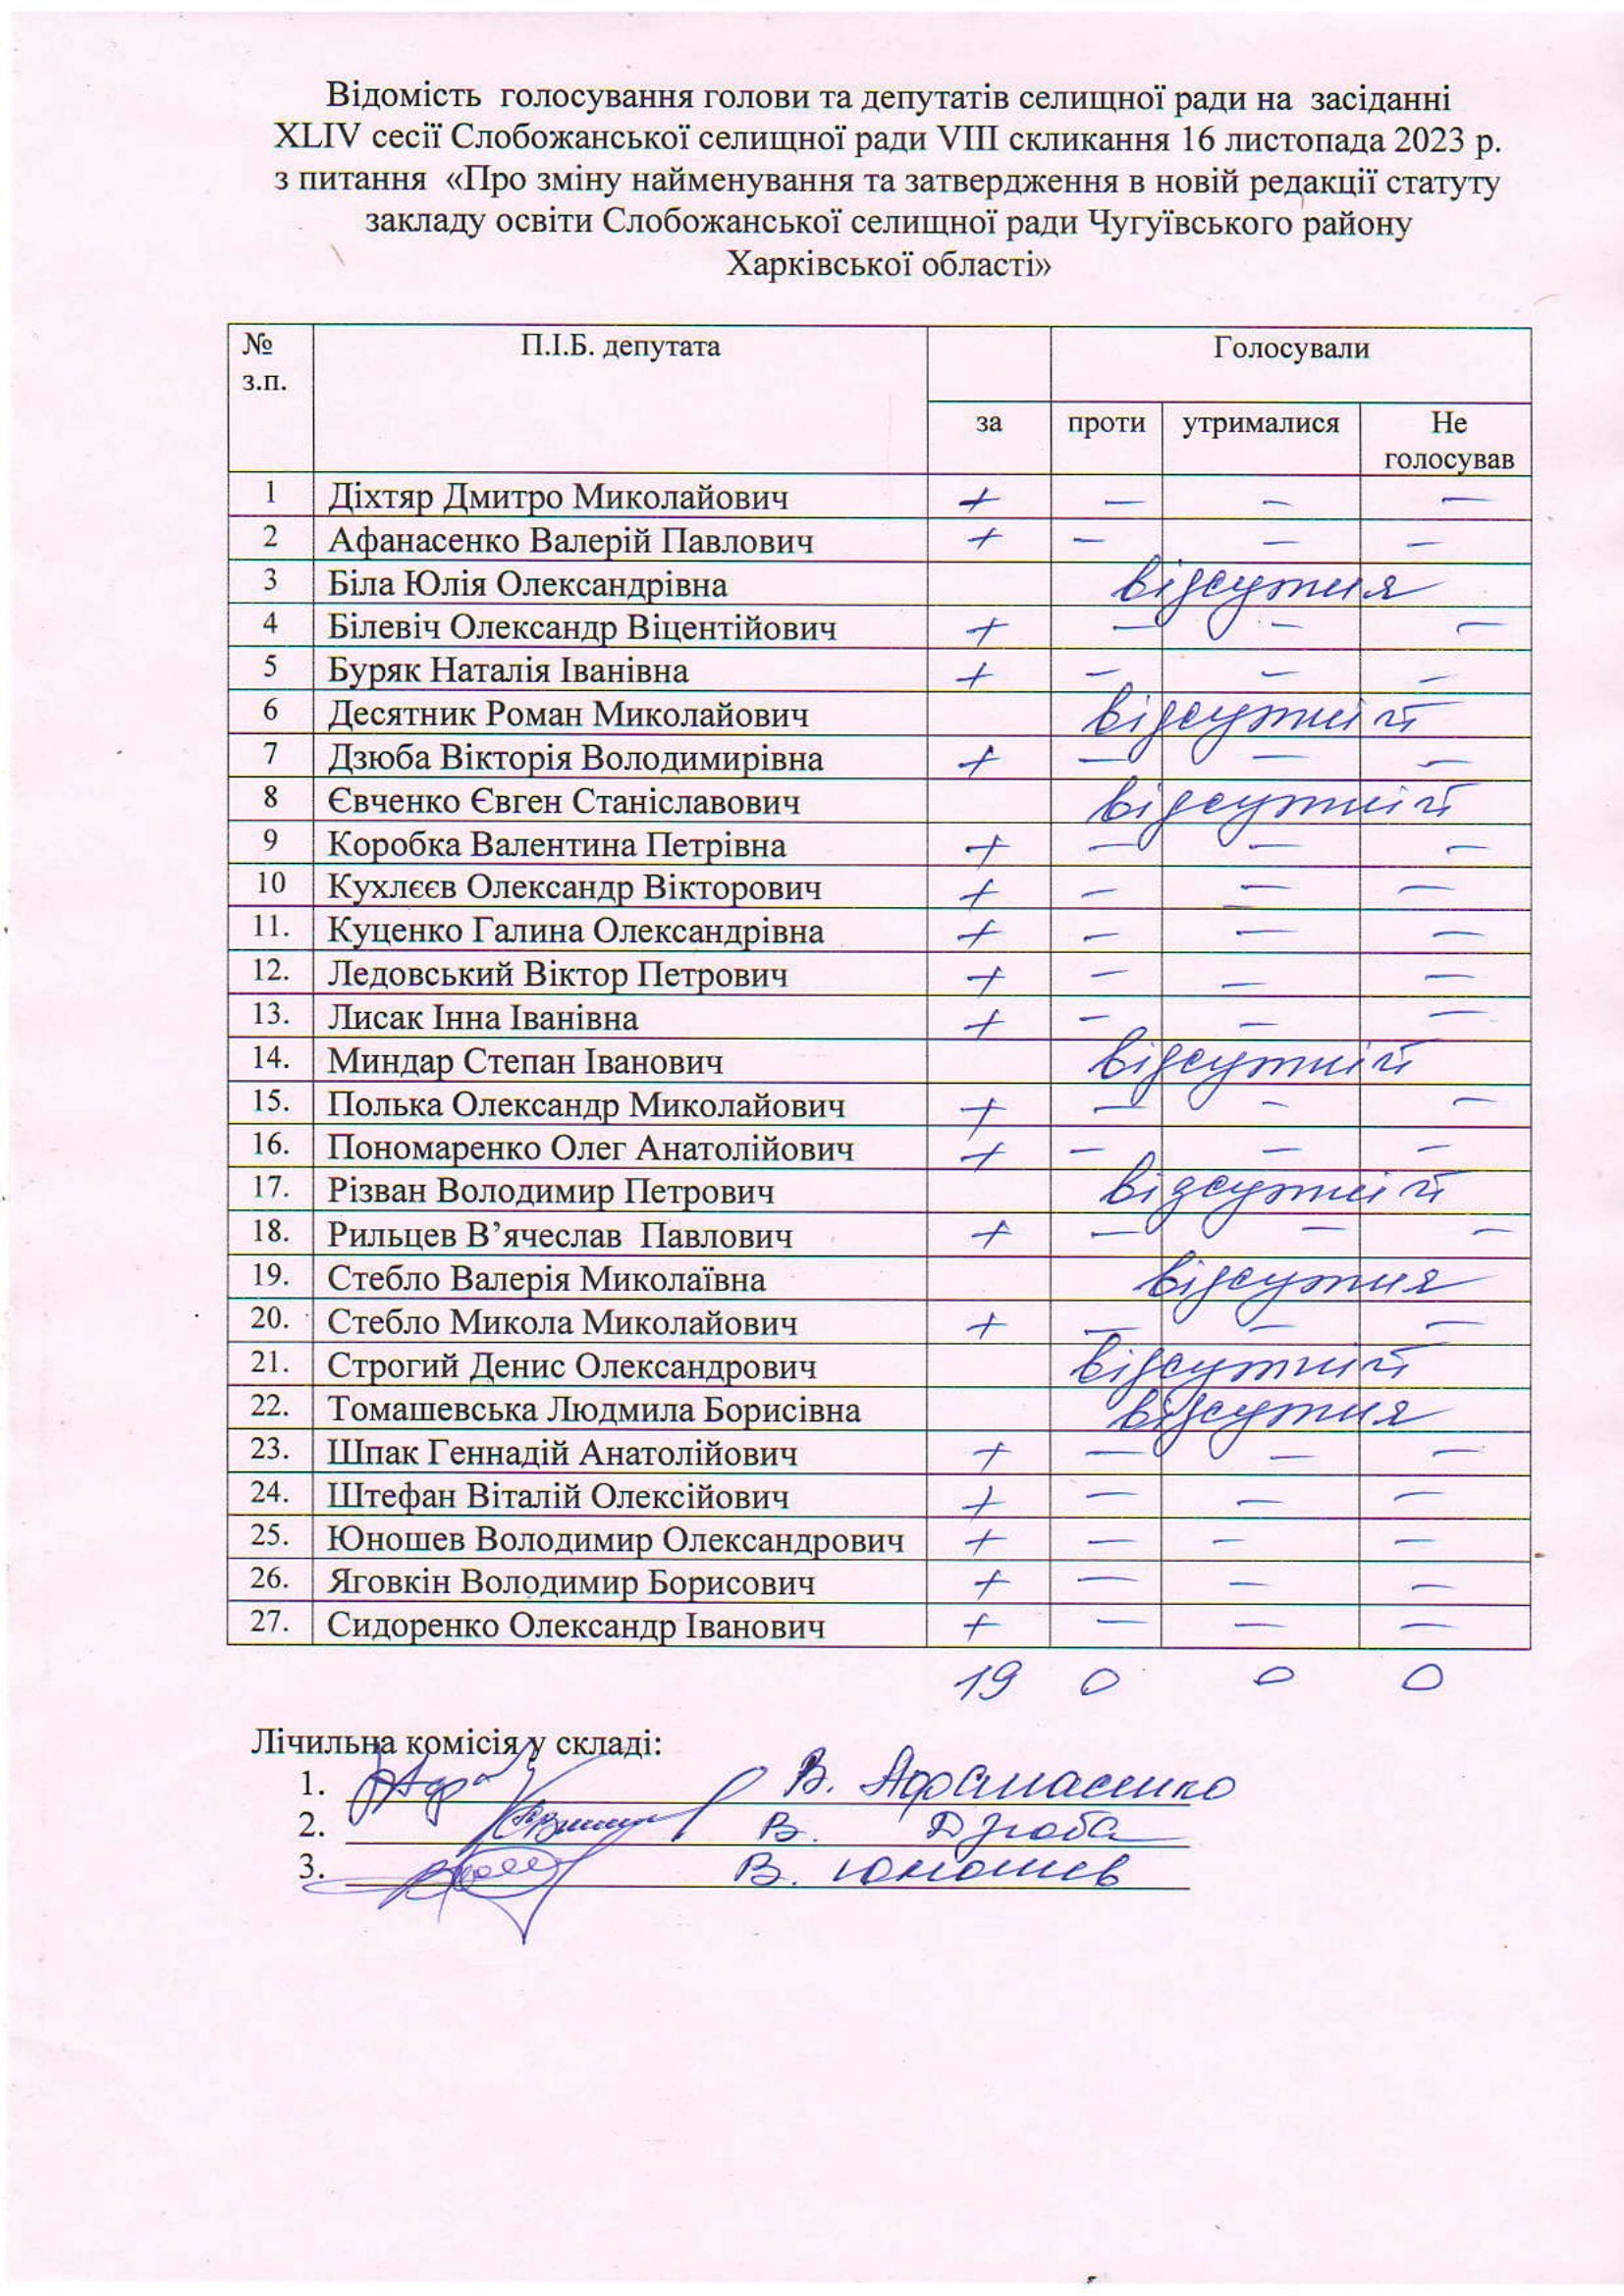 Відомість голосування голови та депутатів селищної ради на засіданні
XLIV сесії Слобожанської селищної ради VIII скликання 16 листопада 2023 р.
з питання «Про зміну найменування та затвердження в новій редакції статуту
закладу освіти Слобожанської селищної ради Чугуївського району
Харківської області»
№ з.п. П.І.Б. депутата Голосували
за проти утрималися Не голосував
1 Діхтяр Дмитро Миколайович + — — —
2 Афанасенко Валерій Павлович + — — —
3 Біла Юлія Олександрівна відсутня
4 Білевіч Олександр Віцентійович + — — —
5 Буряк Наталія Іванівна + — — —
6 Десятник Роман Миколайович відсутній
7 Дзюба Вікторія Володимирівна + — — —
8 Євченко Євген Станіславович відсутній
9 Коробка Валентина Петрівна + — — —
10 Кухлєєв Олександр Вікторович + — — —
11. Куценко Галина Олександрівна + — — —
12. Ледовський Віктор Петрович + — — —
13. Лисак Інна Іванівна + — — —
14. Миндар Степан Іванович відсутній
15. Полька Олександр Миколайович + — — —
16. Пономаренко Олег Анатолійович + — — —
17. Різван Володимир Петрович відсутній
18. Рильцев В’ячеслав Павлович + — — —
19. Стебло Валерія Миколаївна відсутня
20. Стебло Микола Миколайович + — — —
21. Строгий Денис Олександрович відсутній
22. Томашевська Людмила Борисівна відсутня
23. Шпак Геннадій Анатолійович + — — —
24. Штефан Віталій Олексійович + — — —
25. Юношев Володимир Олександрович + — — —
26. Яговкін Володимир Борисович + — — —
27. Сидоренко Олександр Іванович + — — —
19 0 0 0
Лічильна комісія у складі:
1. В. Афанасенко
2. В. Дзюба
3. В. Юношев